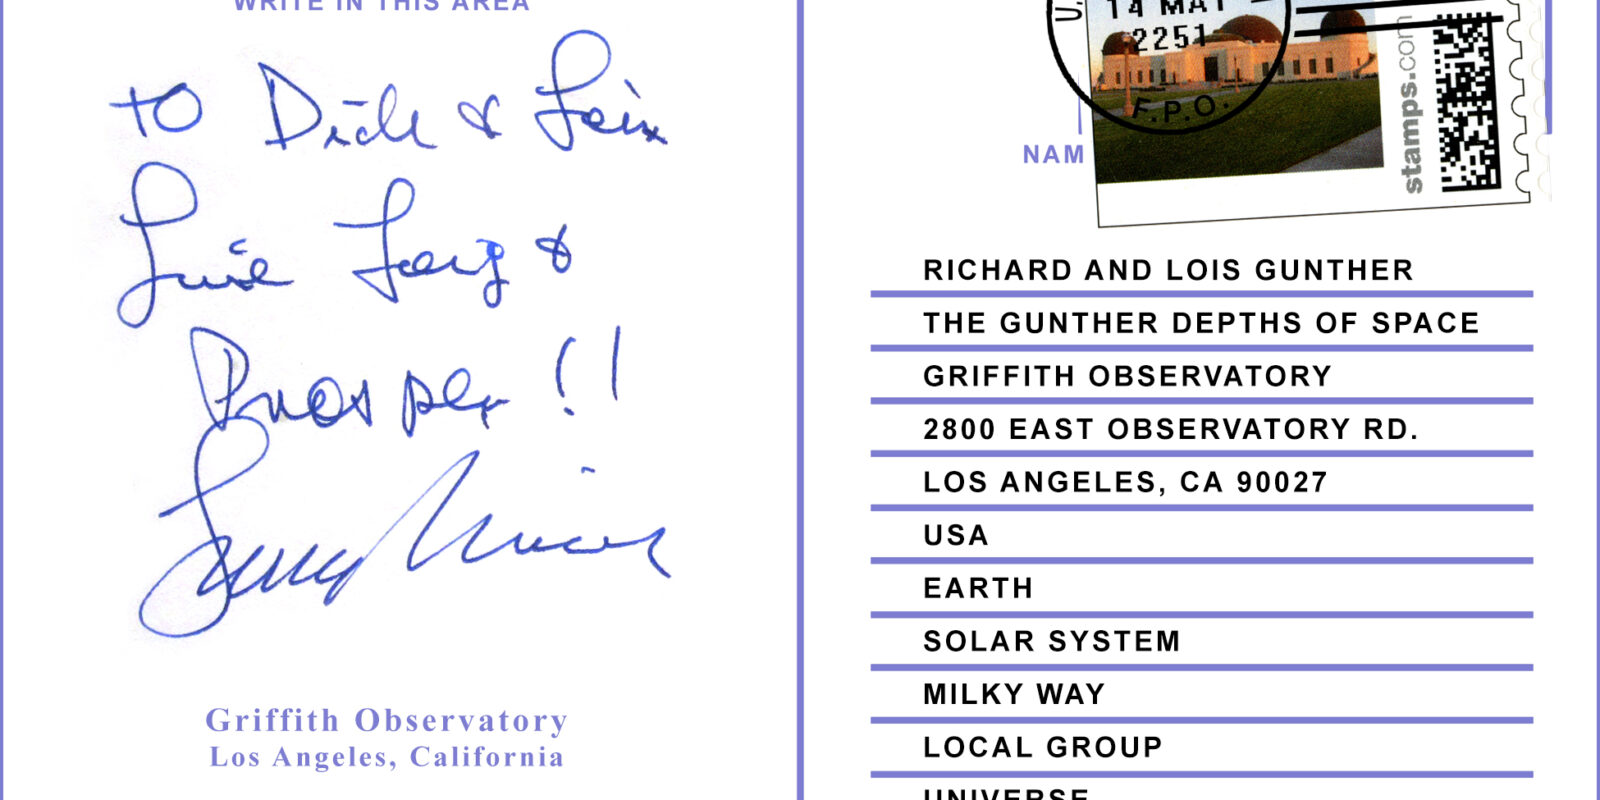 WRITE IN THIS AREA
TO Dick & Lois
Live Long &
Prosper!!
Griffith Observatory
Los Angeles, California
U.
14 MAY
2251
F.P.O.
stamps.com
NAM
RICHARD AND LOIS GUNTHER
THE GUNTHER DEPTHS OF SPACE
GRIFFITH OBSERVATORY
2800 EAST OBSERVATORY RD.
LOS ANGELES, CA 90027
USA
EARTH
SOLAR SYSTEM
MILKY WAY
LOCAL GROUP
UNIVERSE